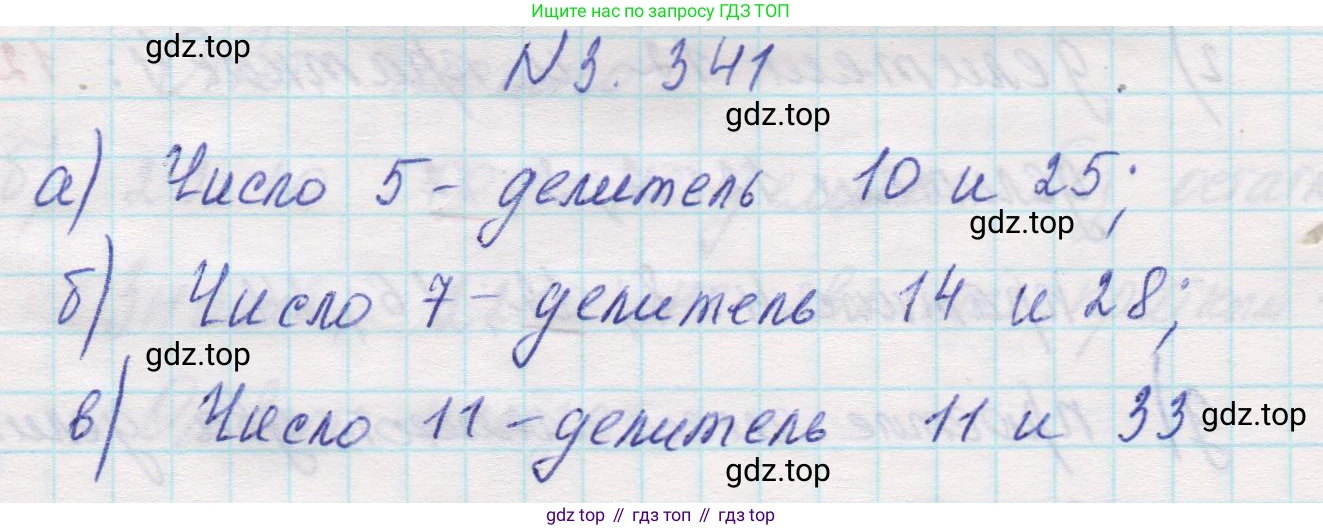 Ищите нас по запросу ГДЗ ТОП
gdz.top
N 3. 341
gdz.top
а) Число 5 - делитель 10 и 25;
gdz.top
б) Число 7 - делитель 14 и 28;
gdz.top
в) Число 11 - делитель 11 и 33
gdz.top
gdz.top
gdz top // гдз топ // gdz.top